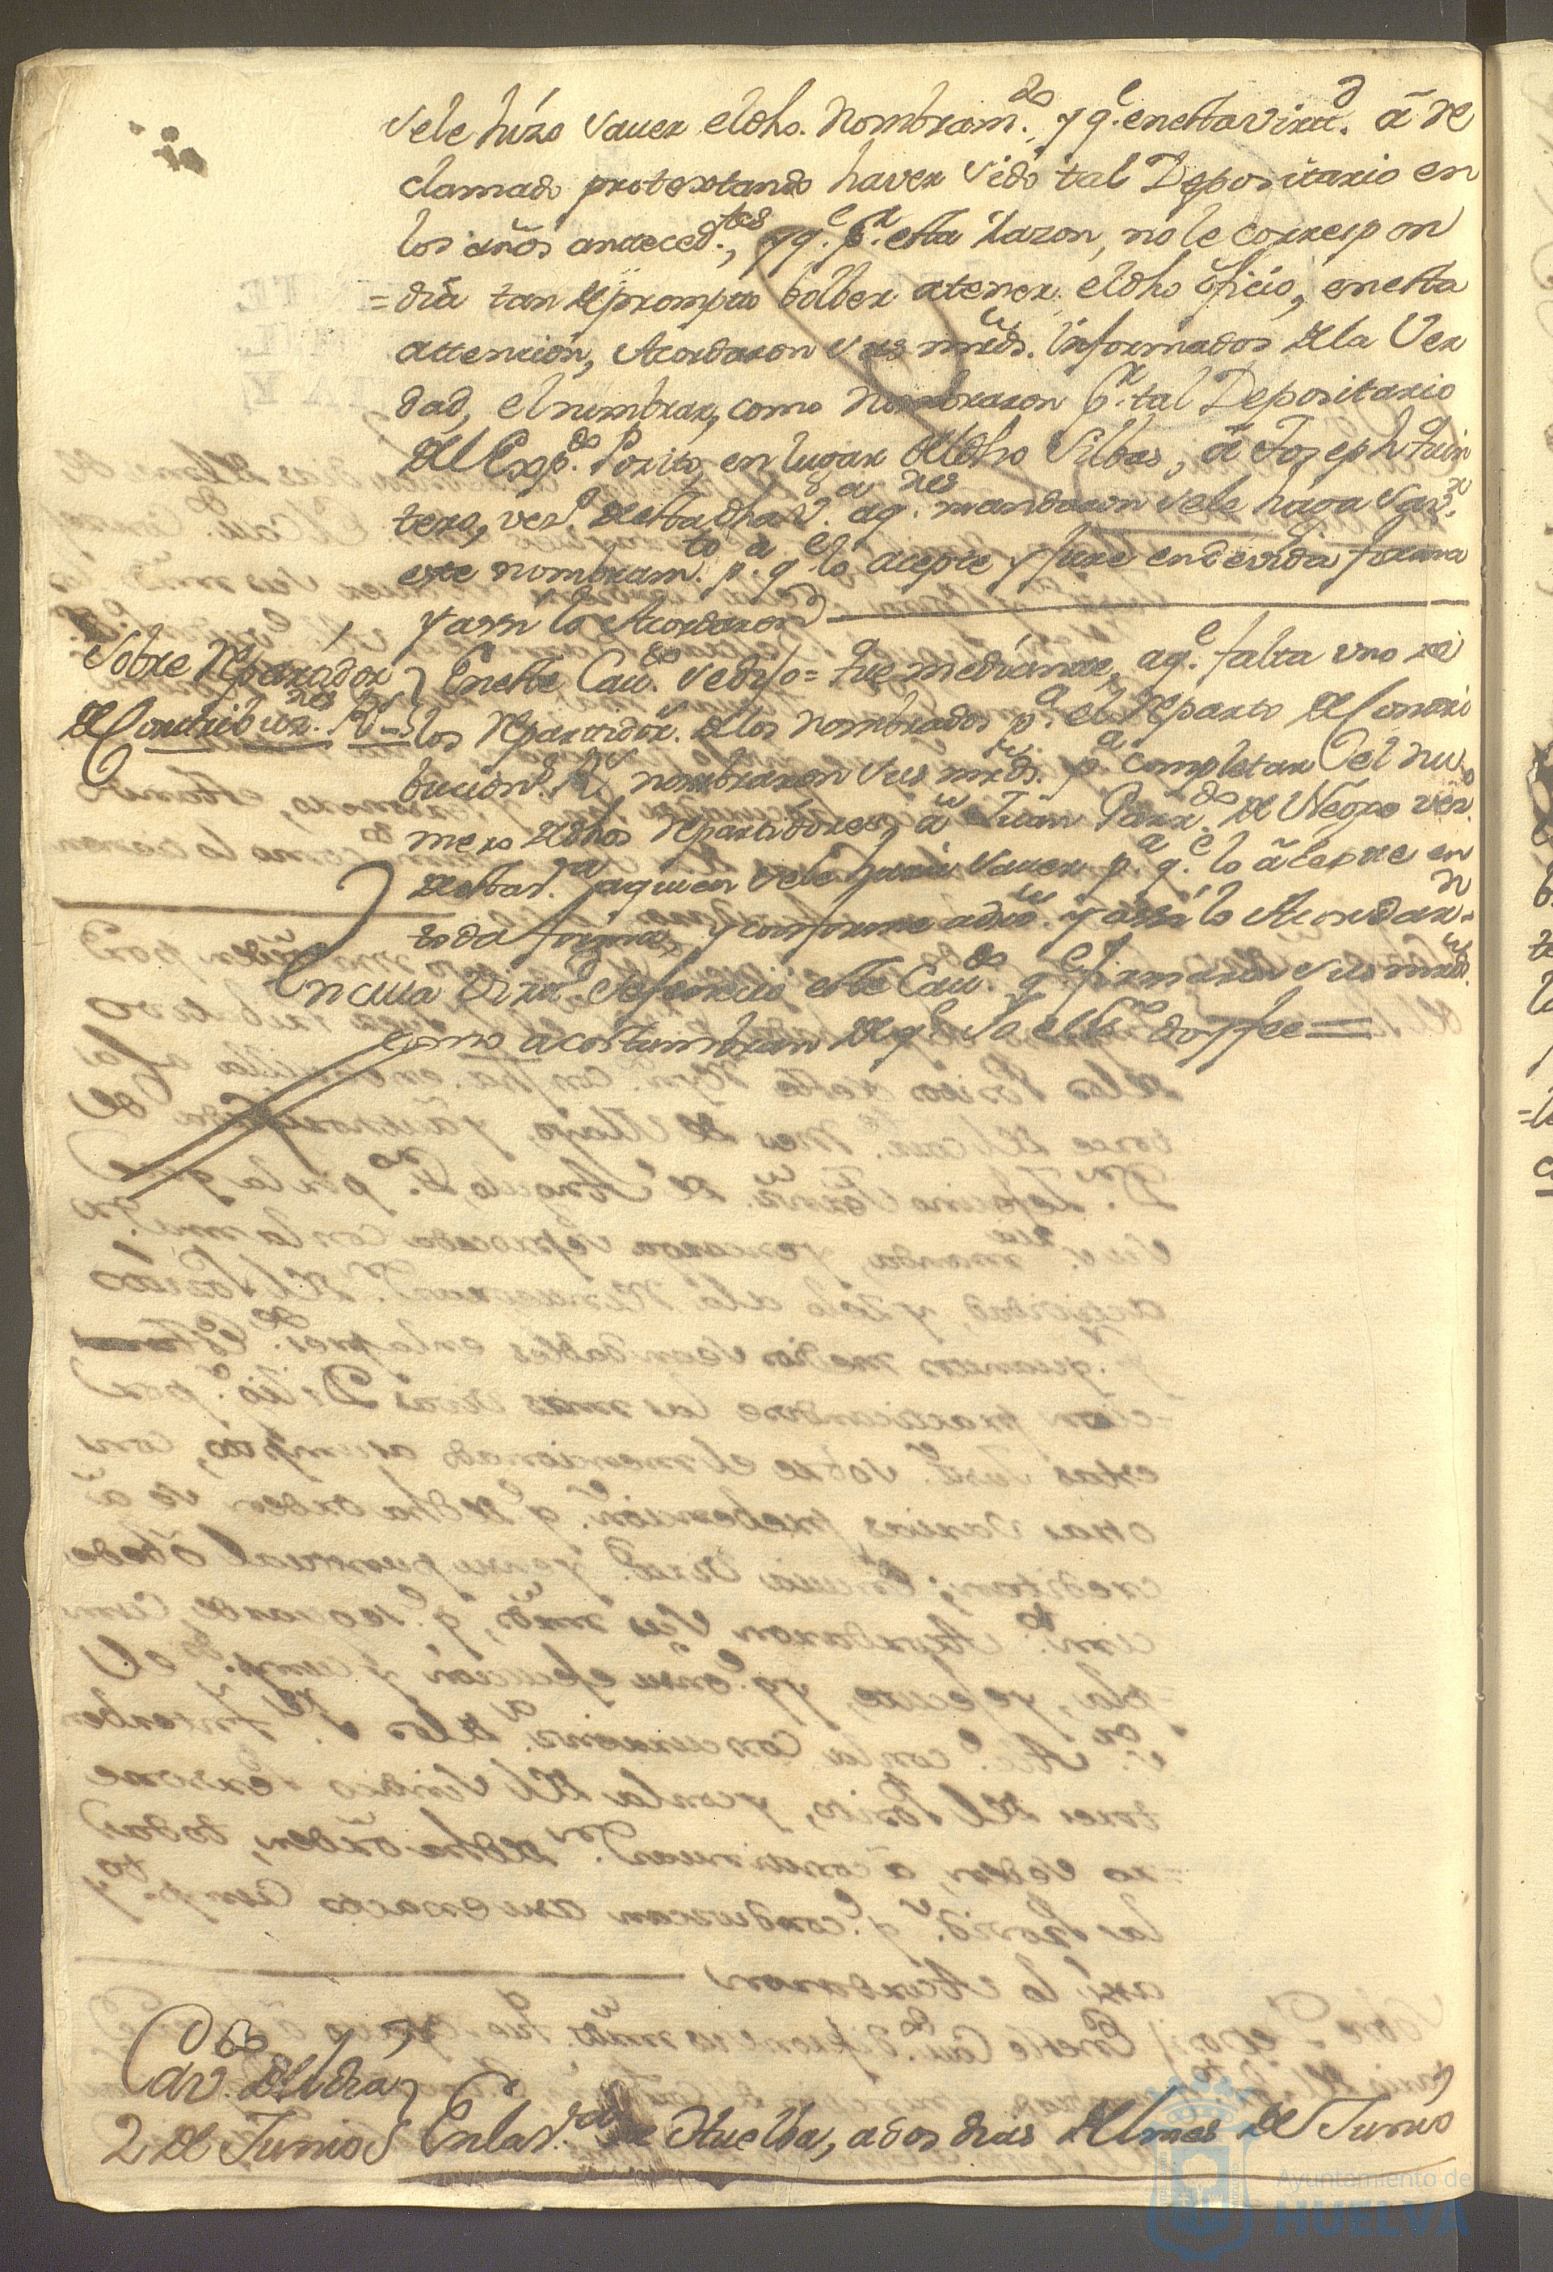 se le hizo saver el dho. Nombram.do y q.e en esta virtud. â re
clamado protextando haver sido tal Depositario en
los años anteced.tes, y q.e p.r esta razon, no le correspon
=dia tan de prompto bolber a tener el dho oficio, en esta
attencion, Acordaron sus mrds. Informados de la Ver
dad, el nombrar, como Nombraron p.r tal Depositario
del Exp.do Posito, en lugar del dho Silbas, â Joseph Quin
tero, vez.o de esta dha V.a aq.n mandaron se le haga sav.r
este nombram.to p.a q.e lo acepte y jure en devida forma
y assi lo Acordaron
Sobre Repartidor
de Contribuz.nes R.s
En este Cav.do se dijo= que mediante, a q.e falta uno de
los Repartidor.s de los nombrados p.a el Reparto de Contri
bucion.s R.s nombraron sus mrds. p.a completar el nu
mero de dhos Repartidores, â Juan de Negro vez.o
de esta V.a a quien se le haria saver p.a q.e lo âcepte en
toda forma, y conforme a dro. y assi lo Acordar.n
En cuia Virtd. se fenecio este Cav.do q.e firmaron sus mrds.
como acostumbran de q.e Yo el ss.no doy fee=
Cav.do del dia
2 de Junio
En la V.a de Huelba, a dos dias del mes de Junio
Ayuntamiento de
HUELVA